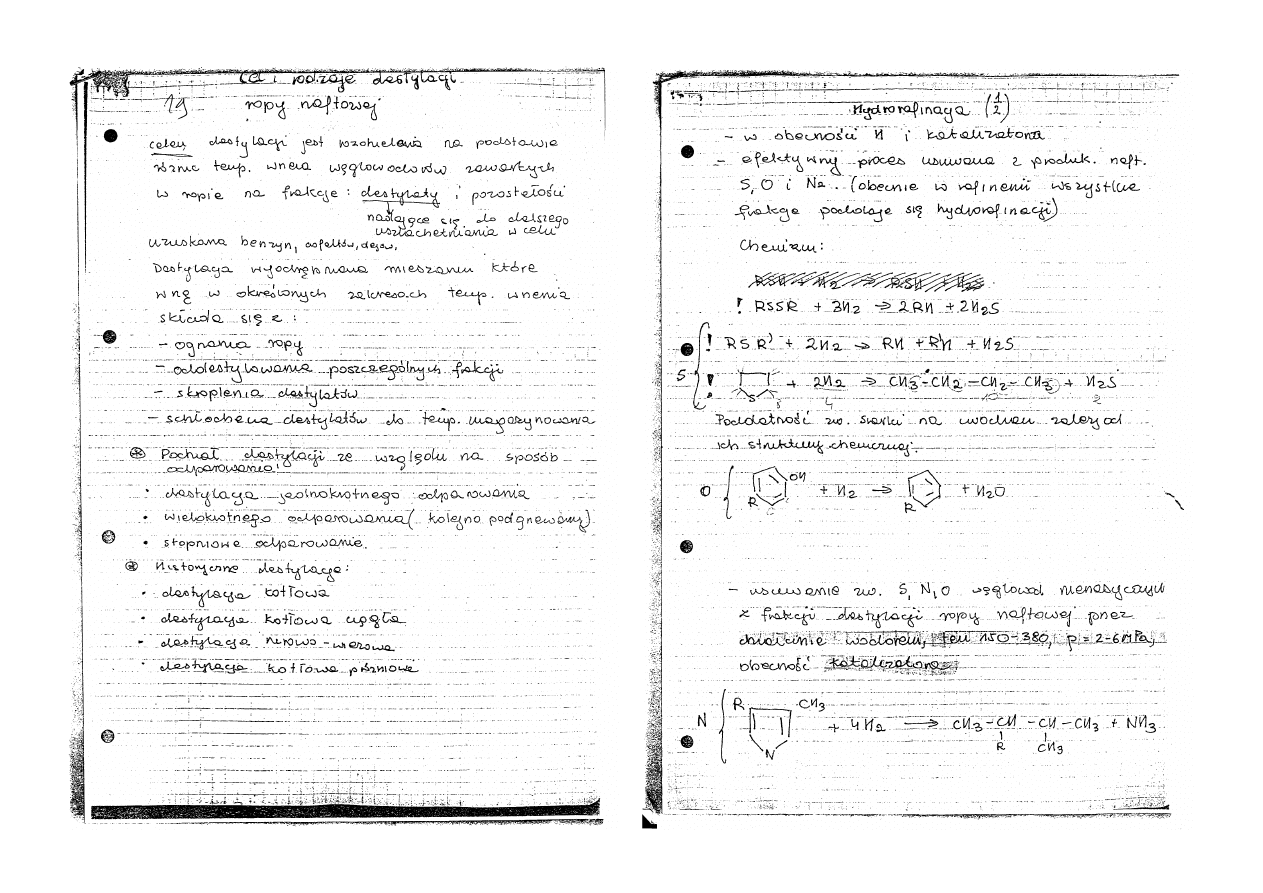 Cel i rodzaje destylacji
19 ropy naftowej
celem destylacji jest rozdzielenie na podstawie
różnic temp. wrzenia węglowodorów zawartych
w ropie na frakcje: destylaty i pozostałości
nadające się do dalszego
uszlachetniania w celu
uzyskania benzyn, asfaltów, olejów,
Destylacja wyodrębniania mieszanin które
wrą w określonych zakresach temp. wrzenia
składa się z:
- ogrzania ropy
- oddestylowania poszczególnych frakcji
- skroplenia destylatów
- schłodzenia destylatów do temp. magazynowania
Podział destylacji ze względu na sposób
odparowania:
• destylacja jednokrotnego odparowania
• wielokrotnego odparowania (kolejno podgrzewamy)
• stopniowe odparowanie.
Historyczne destylacje:
• destylacja kotłowa
• destylacja kotłowa ciągła
• destylacja rurowo-wieżowa
• destylacja kotłowa próżniowa
Hydrorafinacja (1/2)
- w obecności H i katalizatora
- efektywny proces usuwania z produk. naft.
S, O i Na. (obecnie w rafinerii wszystkie
frakcje poddaje się hydrorafinacji)
Chemizm:
! RSSR + 3H2 → 2RH + 2H2S
! RSR' + 2H2 → RH + R'H + H2S
S ! S + 2H2 → CH3-CH2-CH2-CH3 + H2S
4 10 2
Poddatność zw. siarki na uwodorn zależy od
ich struktury chemicznej:
O { OH R + H2 → R + H2O
- usuwanie zw. S, N, O węglowod nienasyconych
z frakcji destylacji ropy naftowej przez
działanie wodorem, temp 150-380, p = 2-6 MPa,
obecność katalizatora
N { R CH3 N + 4H2 → CH3-CH-CH-CH3 + NH3
R CH3